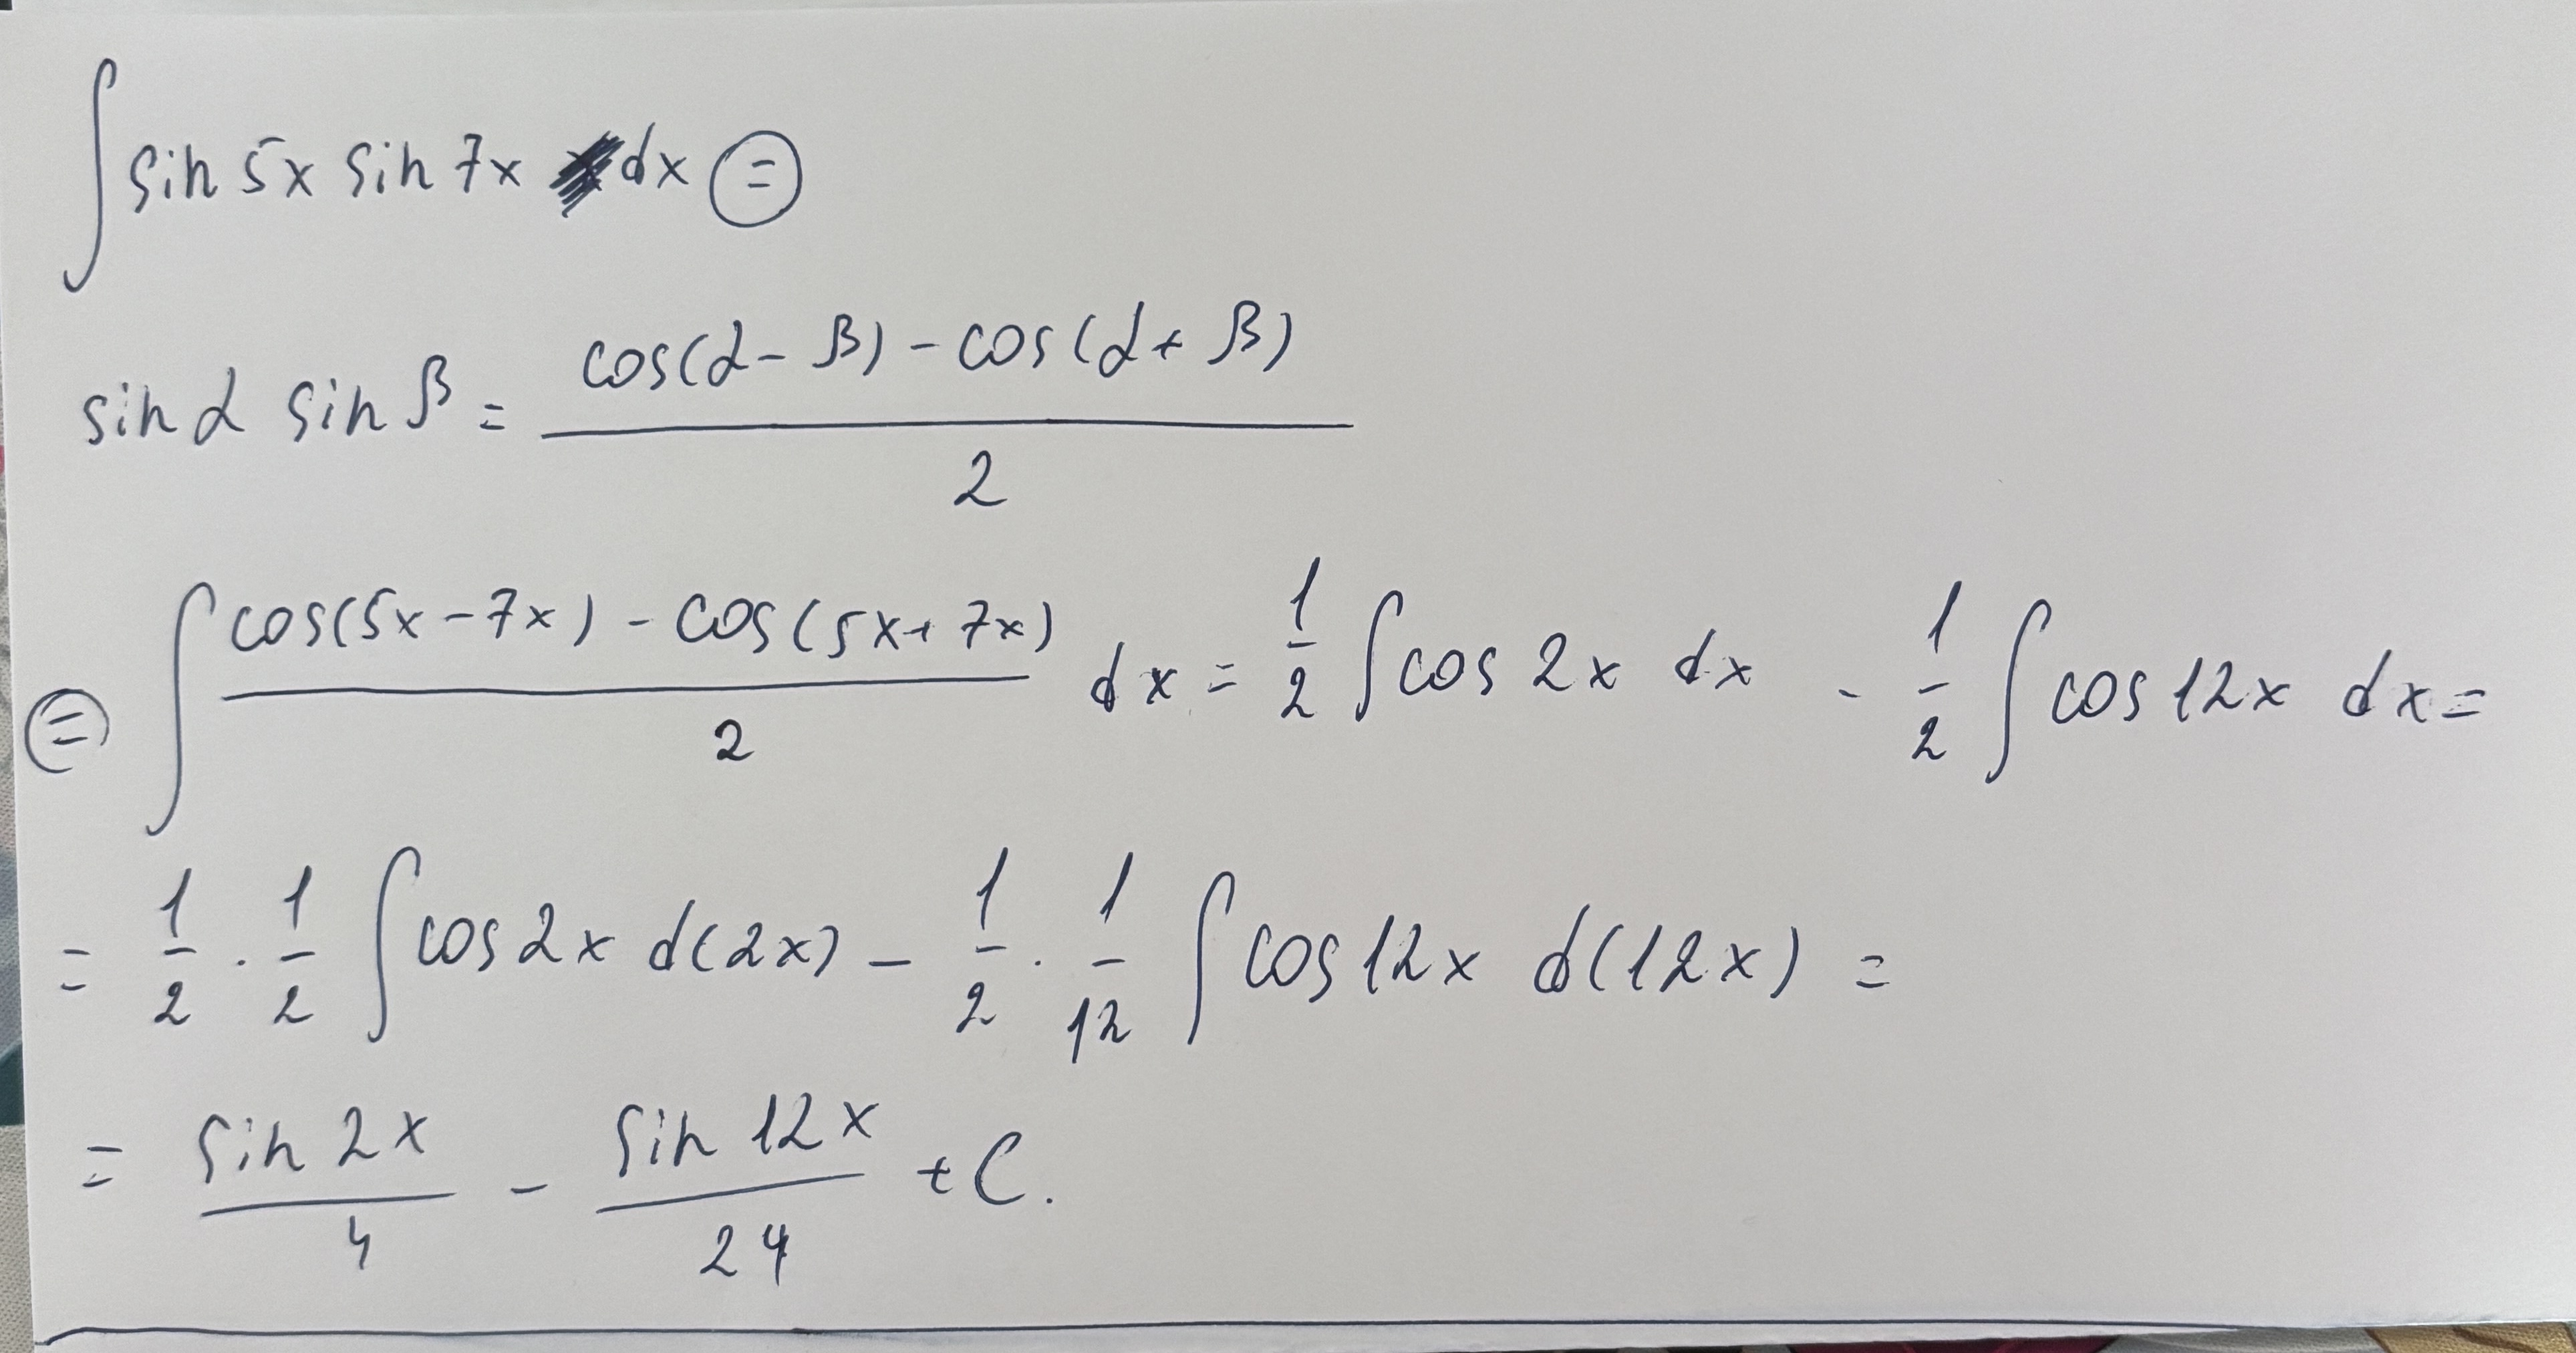 ∫ sin 5x sin 7x dx ⊜
sin α sin β = (cos(α - β) - cos(α + β)) / 2
⊜ ∫ (cos(5x - 7x) - cos(5x + 7x)) / 2 dx = 1/2 ∫ cos 2x dx - 1/2 ∫ cos 12x dx =
= 1/2 · 1/2 ∫ cos 2x d(2x) - 1/2 · 1/12 ∫ cos 12x d(12x) =
= sin 2x / 4 - sin 12x / 24 + C.